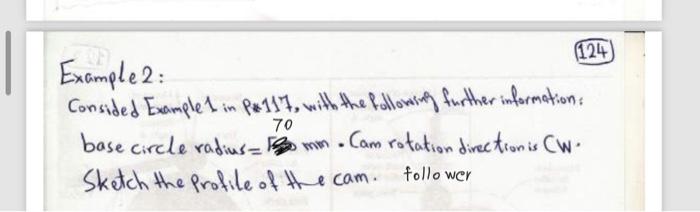 124
Example 2:
Consided Example 1 in P*117, with the following further information:
70
base circle radius= mm. Cam rotation direction is CW.
Sketch the Profile of the cam. follower